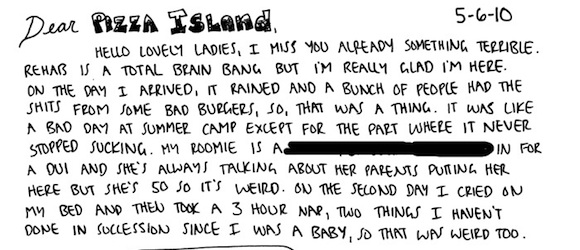 Dear PIZZA ISLAND, 5-6-10
HELLO LOVELY LADIES, I MISS YOU ALREADY SOMETHING TERRIBLE.
REHAB IS A TOTAL BRAIN BANG BUT I'M REALLY GLAD I'M HERE.
ON THE DAY I ARRIVED, IT RAINED AND A BUNCH OF PEOPLE HAD THE
SHITS FROM SOME BAD BURGERS, SO, THAT WAS A THING. IT WAS LIKE
A BAD DAY AT SUMMER CAMP EXCEPT FOR THE PART WHERE IT NEVER
STOPPED SUCKING. MY ROOMIE IS A IN FOR
A DUI AND SHE'S ALWAYS TALKING ABOUT HER PARENTS PUTTING HER
HERE BUT SHE'S 50 SO IT'S WEIRD. ON THE SECOND DAY I CRIED ON
MY BED AND THEN TOOK A 3 HOUR NAP, TWO THINGS I HAVEN'T
DONE IN SUCCESSION SINCE I WAS A BABY, SO THAT WAS WEIRD TOO.